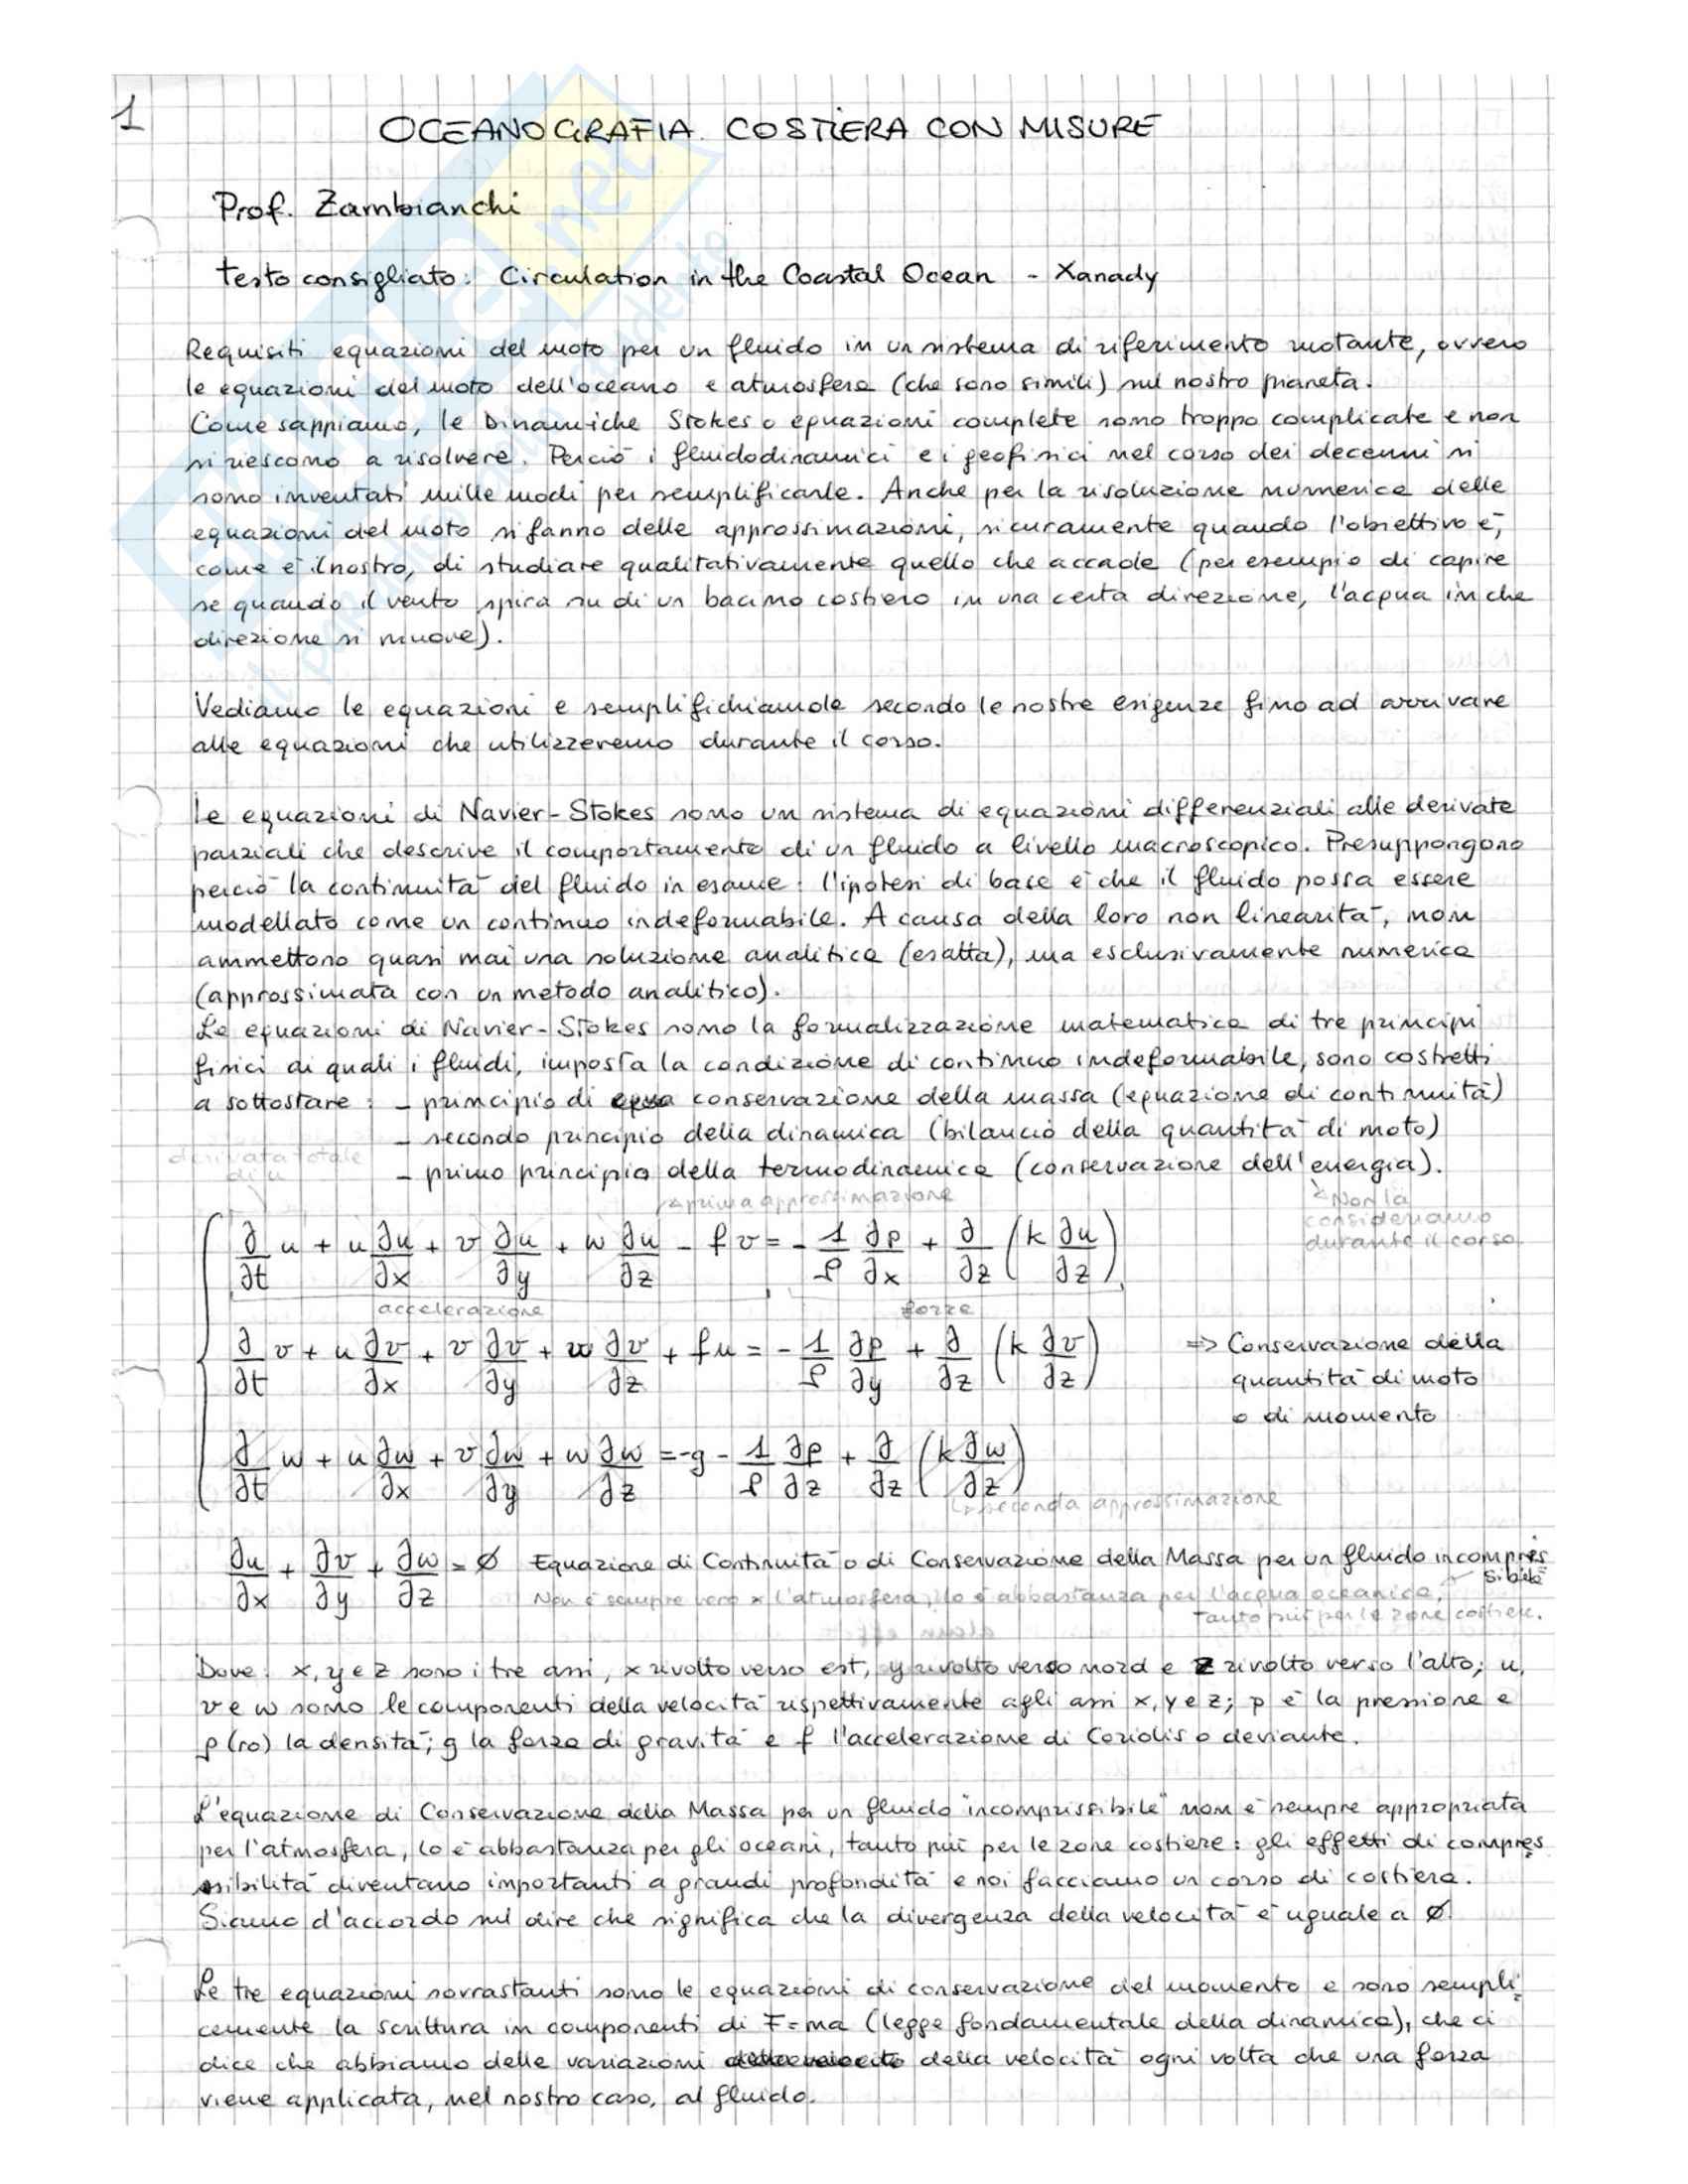 1
OCEANOGRAFIA COSTIERA CON MISURE
Prof. Zambianchi
Testo consigliato: Circulation in the Coastal Ocean - Xanady
Requisiti equazioni del moto per un fluido in un sistema di riferimento rotante, ovvero
le equazioni del moto dell'oceano e atmosfera (che sono simili) sul nostro pianeta.
Come sappiamo, le Dinamiche Stokes o equazioni complete sono troppo complicate e non
si riescono a risolvere. Perciò i fluidodinamici e i geofisici nel corso dei decenni si
sono inventati mille modi per semplificarle. Anche per la risoluzione numerica delle
equazioni del moto si fanno delle approssimazioni, sicuramente quando l'obiettivo è,
come è il nostro, di studiare qualitativamente quello che accade (per esempio di capire
se quando il vento spira su di un bacino costiero in una certa direzione, l'acqua in che
direzione si muove).
Vediamo le equazioni e semplifichiamole secondo le nostre esigenze fino ad arrivare
alle equazioni che utilizzeremo durante il corso.
Le equazioni di Navier-Stokes sono un sistema di equazioni differenziali alle derivate
parziali che descrive il comportamento di un fluido a livello macroscopico. Presuppongono
perciò la continuità del fluido in esame: l'ipotesi di base è che il fluido possa essere
modellato come un continuo indeformabile. A causa della loro non linearità, non
ammettono quasi mai una soluzione analitica (esatta), ma esclusivamente numerica
(approssimata con un metodo analitico).
Le equazioni di Navier-Stokes sono la formalizzazione matematica di tre principi
fisici ai quali i fluidi, imposta la condizione di continuo indeformabile, sono costretti
a sottostare: - principio di conservazione della massa (equazione di continuità)
- secondo principio della dinamica (bilancio della quantità di moto)
derivata totale di u
- primo principio della termodinamica (conservazione dell'energia).
↳ Non la consideriamo durante il corso
↳ prima approssimazione
∂/∂t u + u ∂u/∂x + v ∂u/∂y + w ∂u/∂z - fv = - 1/ρ ∂p/∂x + ∂/∂z (k ∂u/∂z)
accelerazione forze
∂/∂t v + u ∂v/∂x + v ∂v/∂y + w ∂v/∂z + fu = - 1/ρ ∂p/∂y + ∂/∂z (k ∂v/∂z)
=> Conservazione della
quantità di moto
o di momento
∂/∂t w + u ∂w/∂x + v ∂w/∂y + w ∂w/∂z = -g - 1/ρ ∂p/∂z + ∂/∂z (k ∂w/∂z)
↳ seconda approssimazione
∂u/∂x + ∂v/∂y + ∂w/∂z = Ø Equazione di Continuità o di Conservazione della Massa per un fluido incompressibile
Non è sempre vero x l'atmosfera, lo è abbastanza per l'acqua oceanica,
tanto più per le zone costiere.
Dove: x, y e z sono i tre assi, x rivolto verso est, y rivolto verso nord e z rivolto verso l'alto; u,
v e w sono le componenti della velocità rispettivamente agli assi x, y e z; p è la pressione e
ρ (ro) la densità; g la forza di gravità e f l'accelerazione di Coriolis o deviante.
L'equazione di Conservazione della Massa per un fluido "incomprissibile" non è sempre appropriata
per l'atmosfera, lo è abbastanza per gli oceani, tanto più per le zone costiere: gli effetti di compres
sibilità diventano importanti a grandi profondità e noi facciamo un corso di costiera.
Siamo d'accordo sul dire che significa che la divergenza della velocità è uguale a Ø.
Le tre equazioni sovrastanti sono le equazioni di conservazione del momento e sono sempli
cemente la scrittura in componenti di F=ma (legge fondamentale della dinamica), che ci
dice che abbiamo delle variazioni della velocità ogni volta che una forza
viene applicata, nel nostro caso, al fluido.